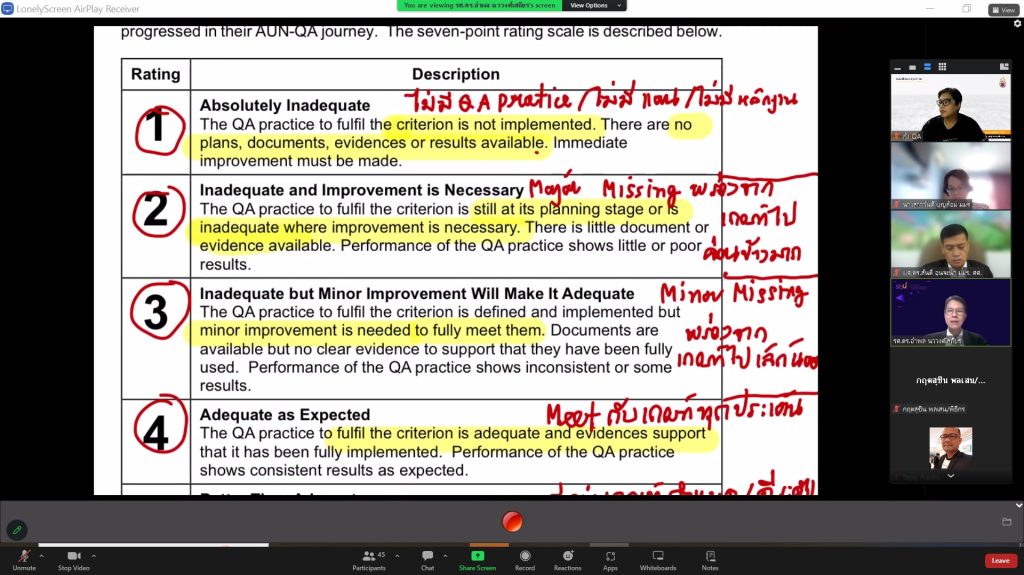 LonelyScreen AirPlay Receiver
You are viewing รศ.ดร.อำพล นววงศ์เสถียร's screen
View Options
View
progressed in their AUN-QA journey. The seven-point rating scale is described below.
Rating Description
1
Absolutely Inadequate ไม่มี QA Pratice / ไม่มี แผน / ไม่มี หลักฐาน
The QA practice to fulfil the criterion is not implemented. There are no
plans, documents, evidences or results available. Immediate
improvement must be made.
2
Inadequate and Improvement is Necessary Major Missing พร่องจาก
The QA practice to fulfil the criterion is still at its planning stage or is
inadequate where improvement is necessary. There is little document or
เกณฑ์ไป
evidence available. Performance of the QA practice shows little or poor
ค่อนข้างมาก
results.
3
Inadequate but Minor Improvement Will Make It Adequate Minor Missing
The QA practice to fulfil the criterion is defined and implemented but
minor improvement is needed to fully meet them. Documents are
พร่องจาก
available but no clear evidence to support that they have been fully
เกณฑ์ไปเล็กน้อย
used. Performance of the QA practice shows inconsistent or some
results.
4
Adequate as Expected Meet กับเกณฑ์ทุกประเด็น
The QA practice to fulfil the criterion is adequate and evidences support
that it has been fully implemented. Performance of the QA practice
shows consistent results as expected.
QA
รศ.ดร.อำพล นววงศ์เสถียร
กฤตสุชิน พลเสน/...
กฤตสุชิน พลเสน/พิธีกร
Unmute
Stop Video
Participants 45
Chat
Share Screen
Record
Reactions
Apps
Whiteboards
Notes
Leave